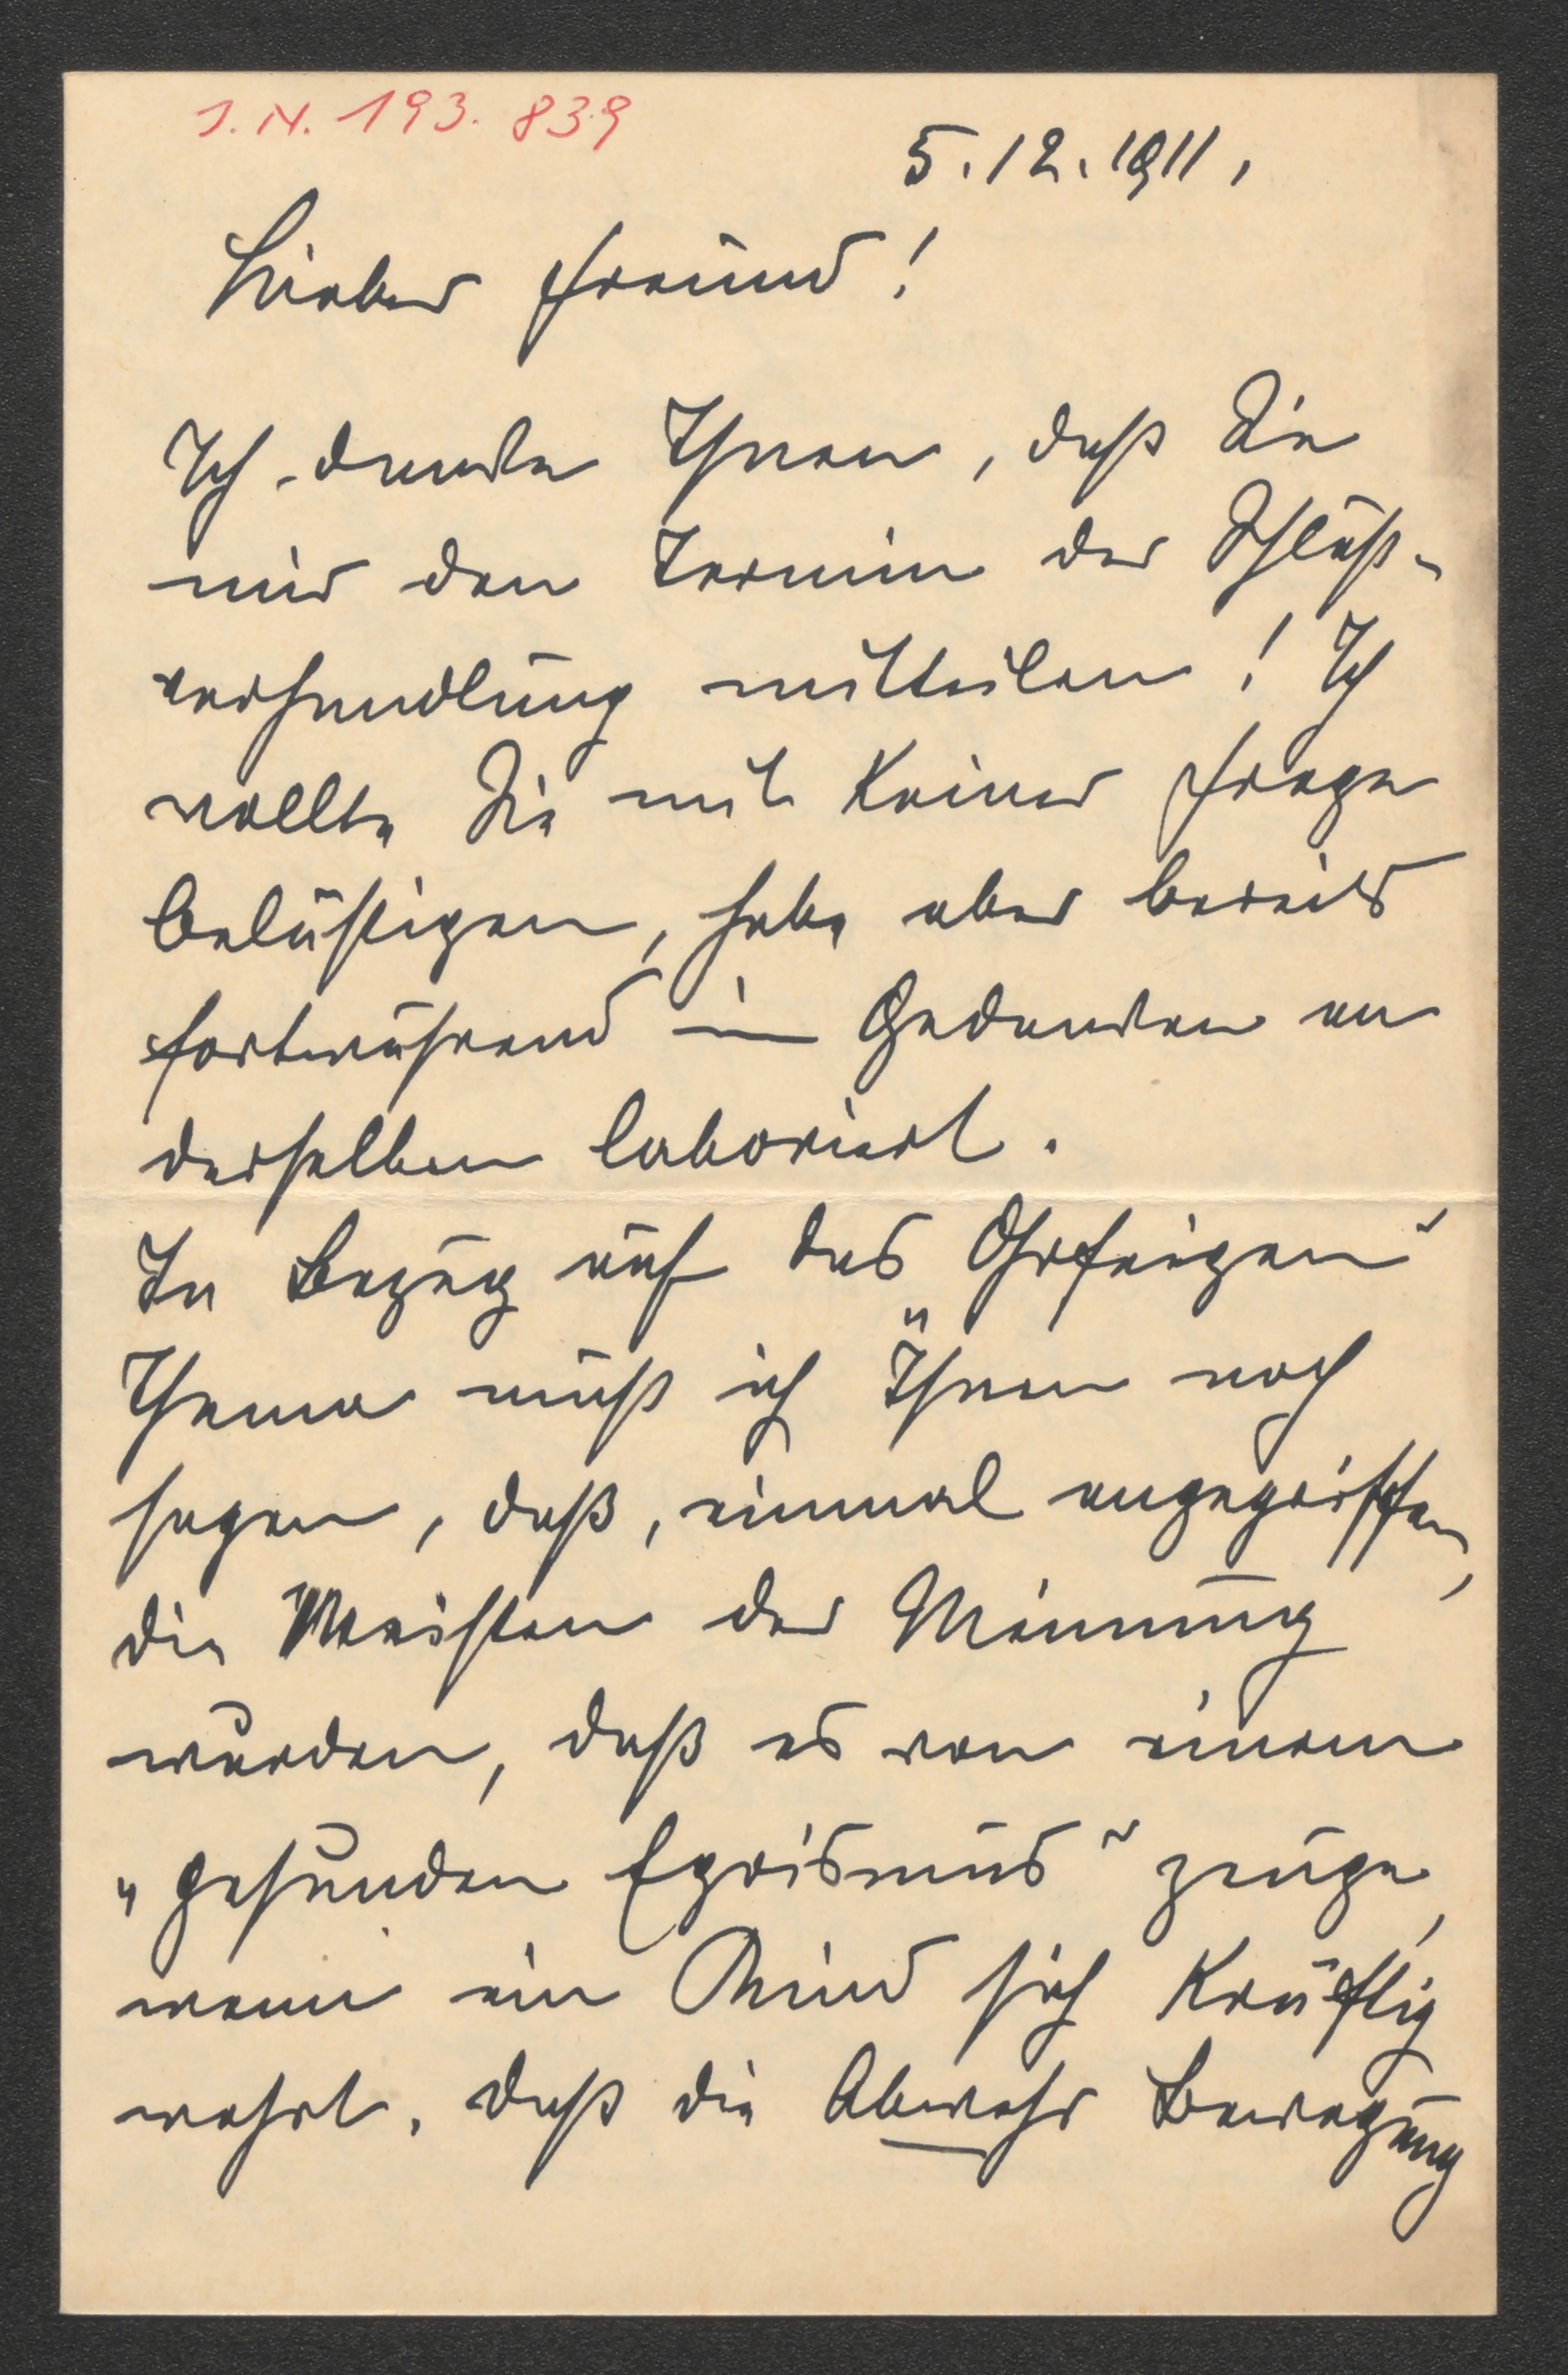 J.N. 193.839
5.12.1911.
Lieber Freund!
Ich danke Ihnen, daß Sie
mir den Termin der Schluß-
verhandlung mitteilen! Ich
wollte Sie mit keiner Frage
belästigen, habe aber bereits
fortwährend in Gedanken an
derselben laboriert.
In Bezug auf das „Ohrfeigen“
Thema muß ich Ihnen noch
sagen, daß, einmal angegriffen,
die Meisten der Meinung
wurden, daß es von einem
„gesunden Egoismus“ zeuge,
wenn ein Kind sich kräftig
wehrt. Daß die Abwehr Bewegung